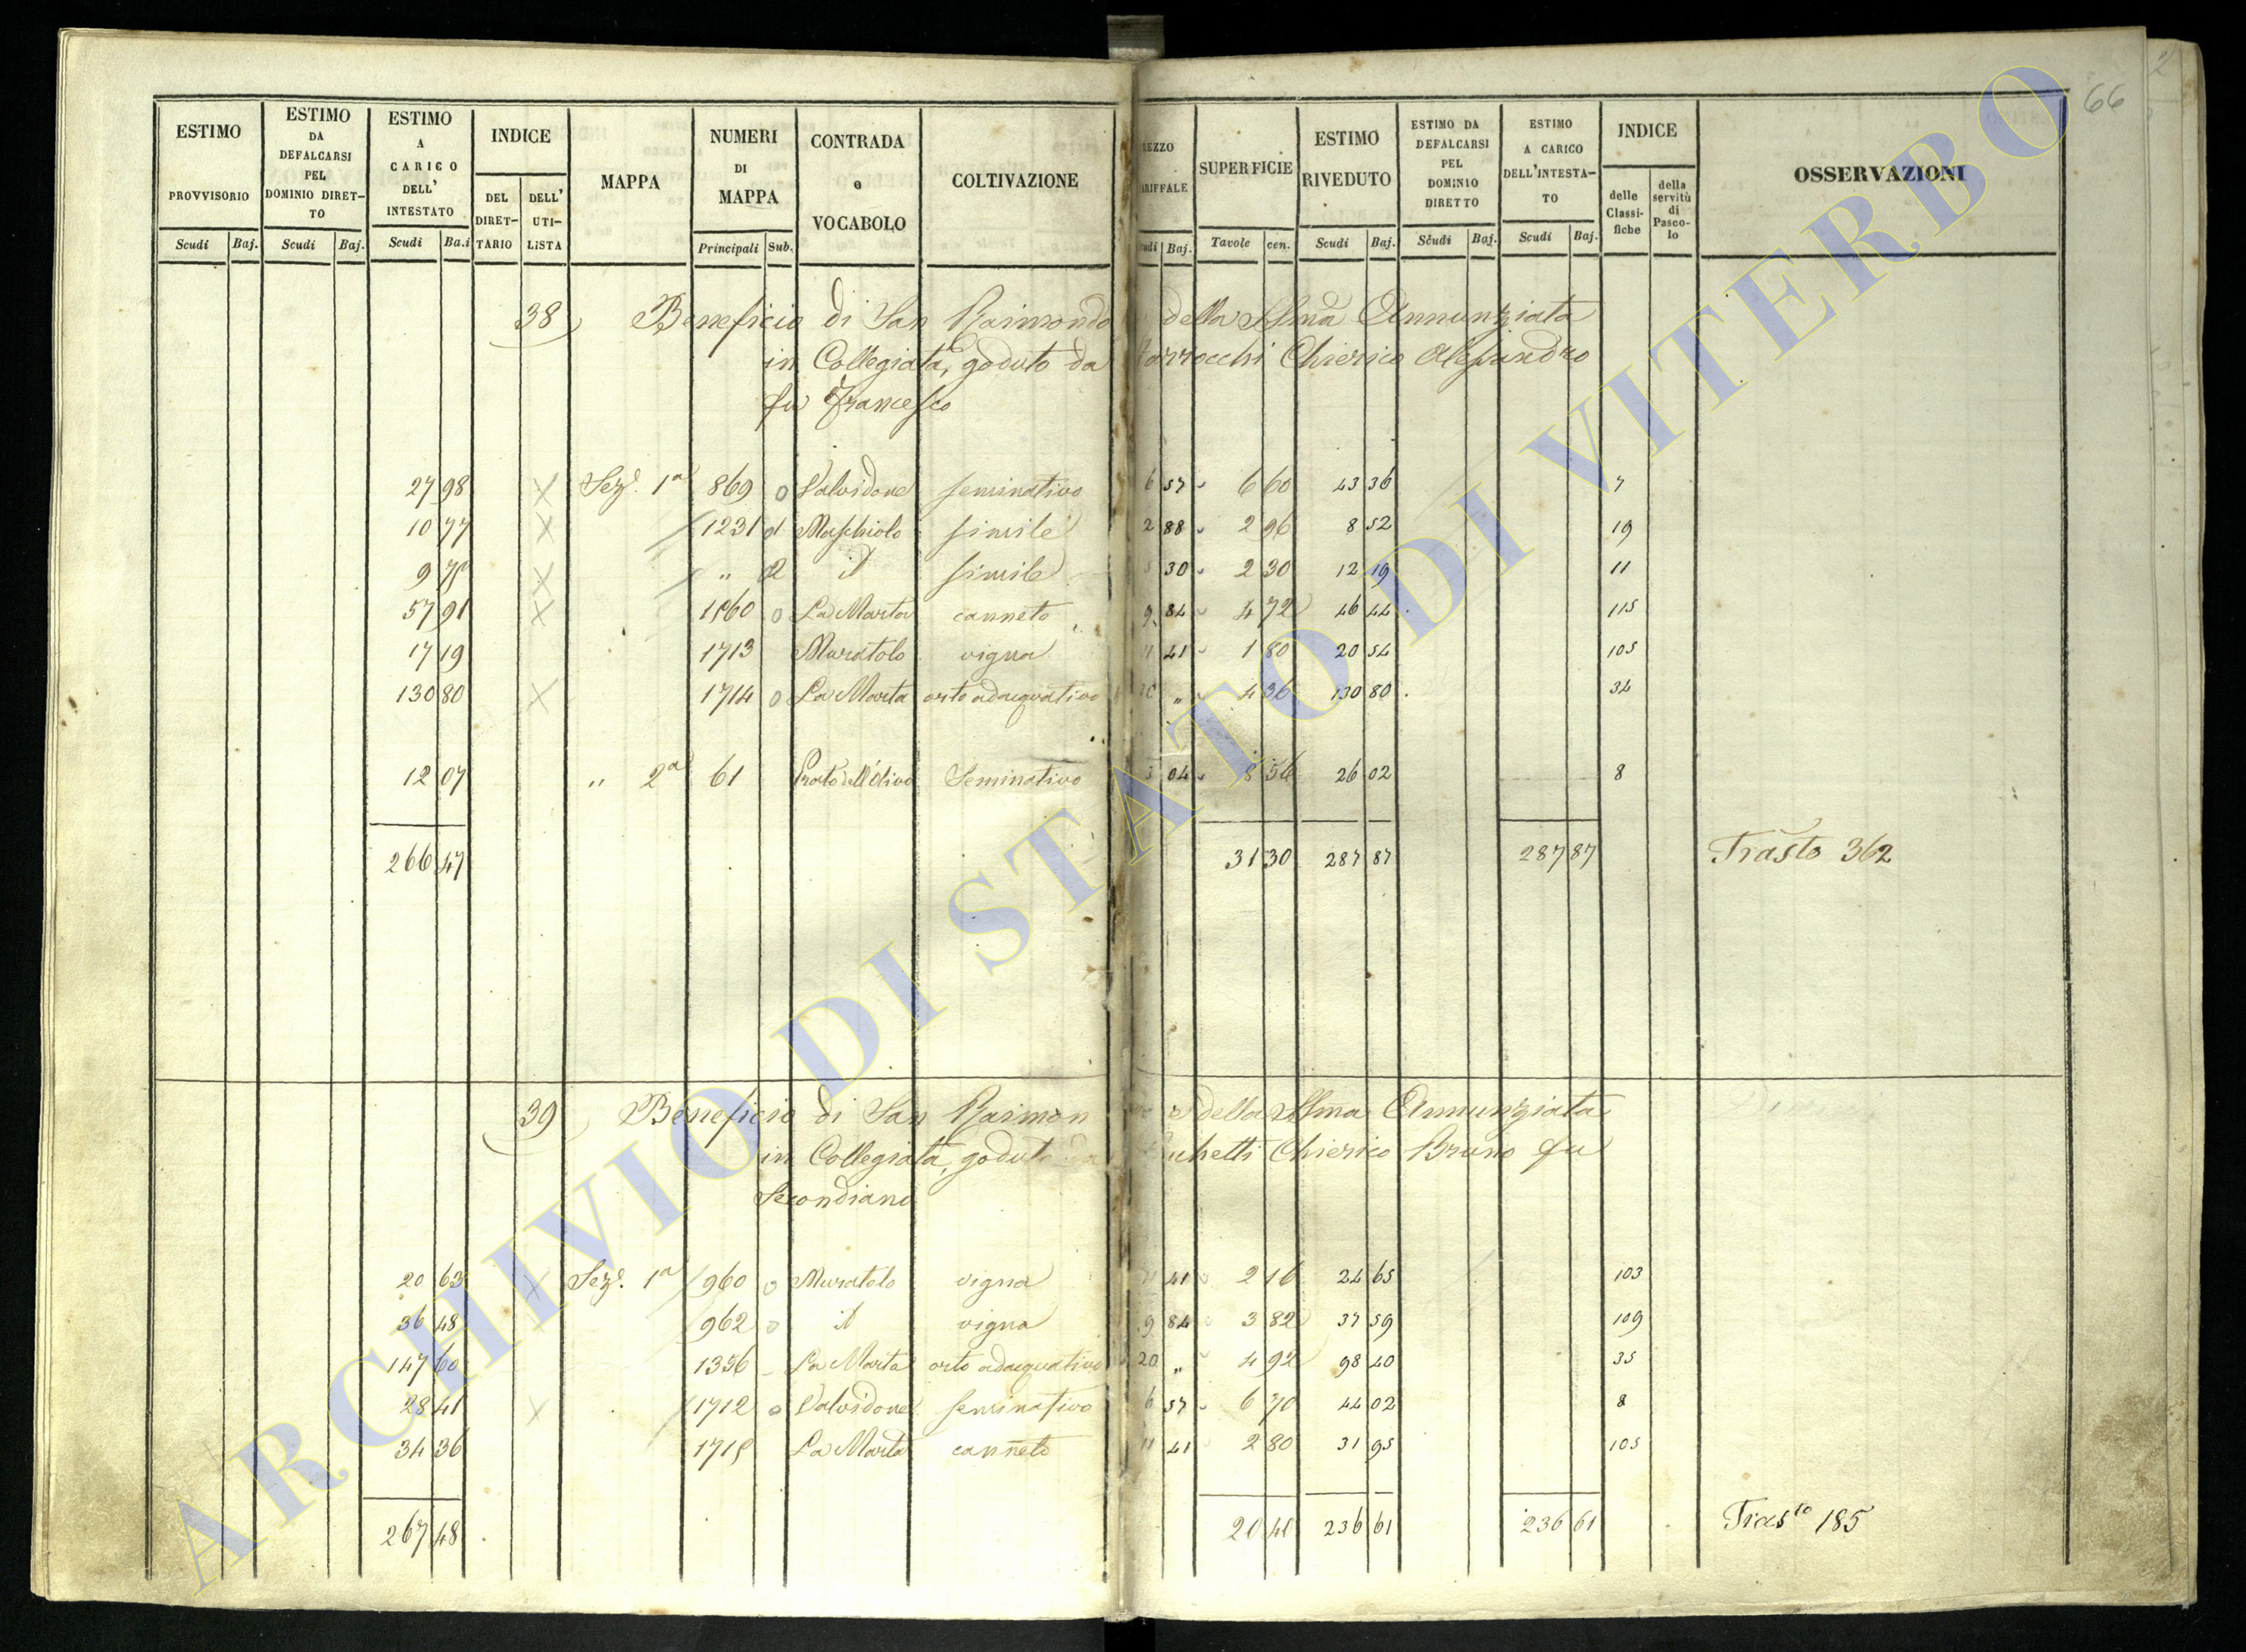 66
ESTIMO PROVVISORIO Scudi Baj. ESTIMO DA DEFALCARSI PEL DOMINIO DIRETTO Scudi Baj. ESTIMO A CARICO DELL' INTESTATO Scudi Ba.i INDICE DEL DIRETTARIO DELL' UTILISTA MAPPA NUMERI DI MAPPA Principali Sub. CONTRADA o VOCABOLO COLTIVAZIONE
REZZO ARIFFALE udi Baj. SUPERFICIE Tavole cen. ESTIMO RIVEDUTO Scudi Baj. ESTIMO DA DEFALCARSI PEL DOMINIO DIRETTO Scudi Baj. ESTIMO A CARICO DELL'INTESTATO Scudi Baj. INDICE delle Classifiche della servitù di Pascolo OSSERVAZIONI
38 Beneficio di San Raimondo della SSma Annunziata
in Collegiata, goduto da Chierico Alessandro
fu Francesco
27 98 Sez.e 1a 869 0 Valvidone seminativo 6 57 6 60 43 36 7
10 77 1231 1 Maschiolo simile 2 88 2 96 8 52 19
9 75 " 2 id simile 5 30 2 30 12 19 11
57 91 1560 0 La Marta canneto 9 84 4 72 46 44 115
17 19 1713 Muratolo vigna 11 41 1 80 20 54 105
130 80 1714 0 La Marta orto adacquativo " 4 36 130 80 34
12 07 " 2a 61 Prato dell'Olivo Seminativo 3 04 8 56 26 02 8
266 47 31 30 287 87 287 87 Trasto 362
39 Beneficio di San Raimon della SSma Annunziata
in Collegiata, goduto da Chierico Bruno fu
Secondiano
20 63 Sez.e 1a 960 0 Muratolo vigna 11 41 2 16 24 65 103
36 48 962 0 id vigna 9 84 3 82 37 59 109
147 60 1356 La Marta orto adacquativo 20 " 4 92 98 40 35
28 41 1712 0 Valvidone seminativo 6 57 6 70 44 02 8
34 36 1715 La Marta canneto 11 41 2 80 31 95 105
267 48 20 40 236 61 236 61 Trasto 185
ARCHIVIO DI STATO DI VITERBO